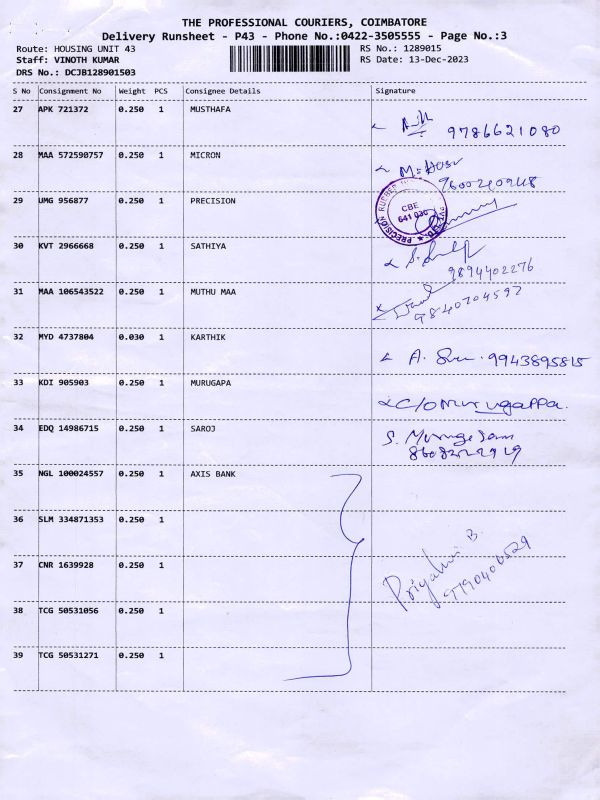 THE PROFESSIONAL COURIERS, COIMBATORE
Delivery Runsheet - P43 - Phone No.:0422-3505555 - Page No.:3
Route: HOUSING UNIT 43 RS No.: 1289015
Staff: VINOTH KUMAR RS Date: 13-Dec-2023
DRS No.: DCJB128901503
S No Consignment No Weight PCS Consignee Details Signature
27 APK 721372 0.250 1 MUSTHAFA
9786621080
28 MAA 572590757 0.250 1 MICRON
29 UMG 956877 0.250 1 PRECISION
PRECISION RUBBER
CBE
641 030
30 KVT 2966668 0.250 1 SATHIYA
9894402276
31 MAA 106543522 0.250 1 MUTHU MAA
9840704592
32 MYD 4737804 0.030 1 KARTHIK
A. 9943895815
33 KDI 905903 0.250 1 MURUGAPA
C/O Murugappa.
34 EDQ 14986715 0.250 1 SAROJ
S. Murugesam
35 NGL 100024557 0.250 1 AXIS BANK
36 SLM 334871353 0.250 1
Priyadharsini B.
37 CNR 1639928 0.250 1
38 TCG 50531056 0.250 1
39 TCG 50531271 0.250 1